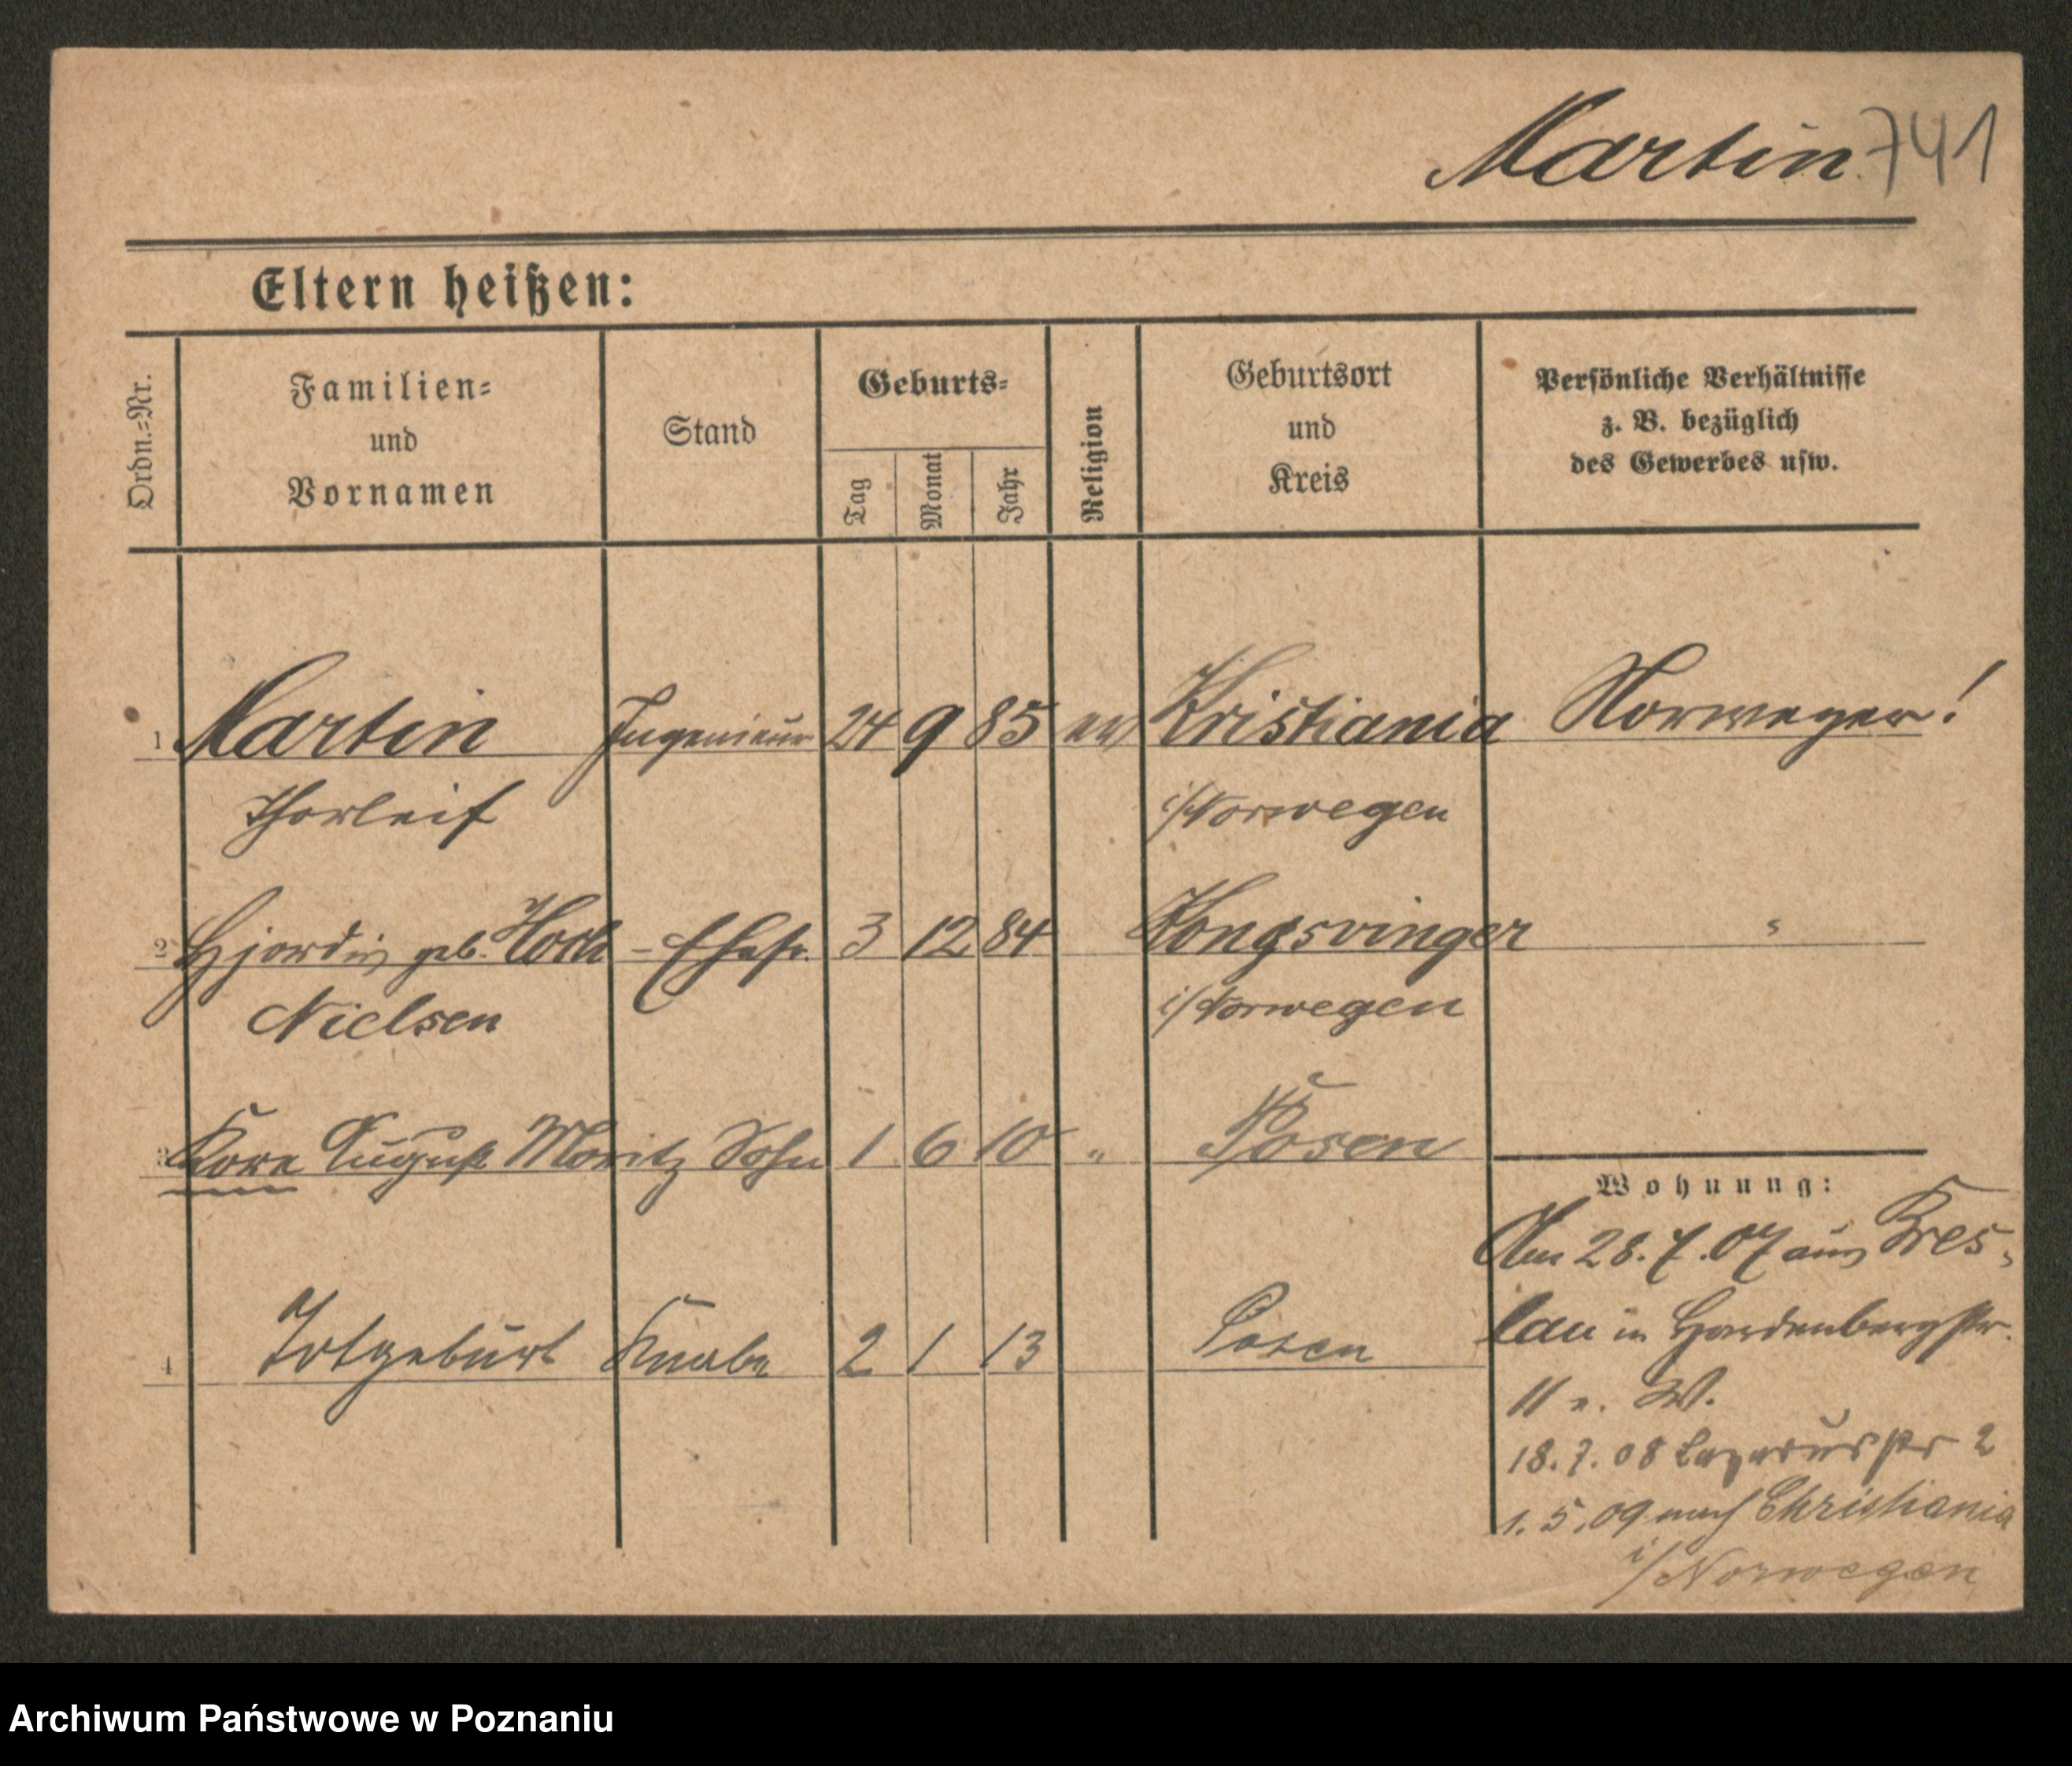 Martin 741
Eltern heißen:
Ordn.=Nr.
Familien=
und
Vornamen
Stand
Geburts=
Tag
Monat
Jahr
Religion
Geburtsort
und
Kreis
Persönliche Verhältnisse
z. B. bezüglich
des Gewerbes usw.
1 Martin Ingenieur 24 9 85 ev Kristiania Norweger!
Thorleif i/Norwegen
2 Hjördis geb. - Ehefr. 3 12 84 Kongsvinger "
Nielsen i/Norwegen
3 Kore August Moritz Sohn 1 6 10 " Posen
4 Totgeburt Knabe 2 1 13 Posen
Wohnung:
Am 28.7.07 aus Bres-
lau in Hardenbergstr.
11 W.
18.7.08 Lazarusstr 2
1.5.09 nach Christiania
i/Norwegen
Archiwum Państwowe w Poznaniu